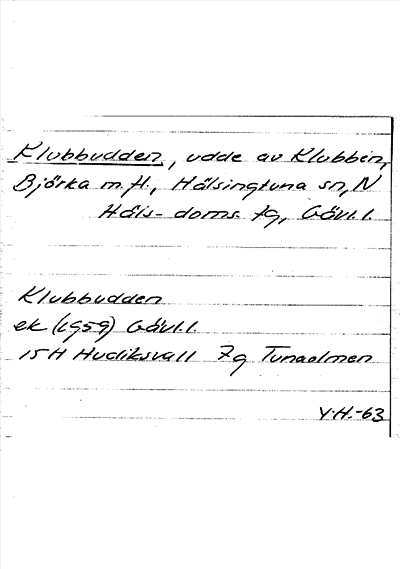 Klubbudden, udde av Klubben,
Björka m.fl., Hälsingtuna sn, N
Häls. doms. tg, Gävl.l.
Klubbudden
ek (1959) Gävl.l.
15H Hudiksvall 7g Tunaolmen
Y.H.-63